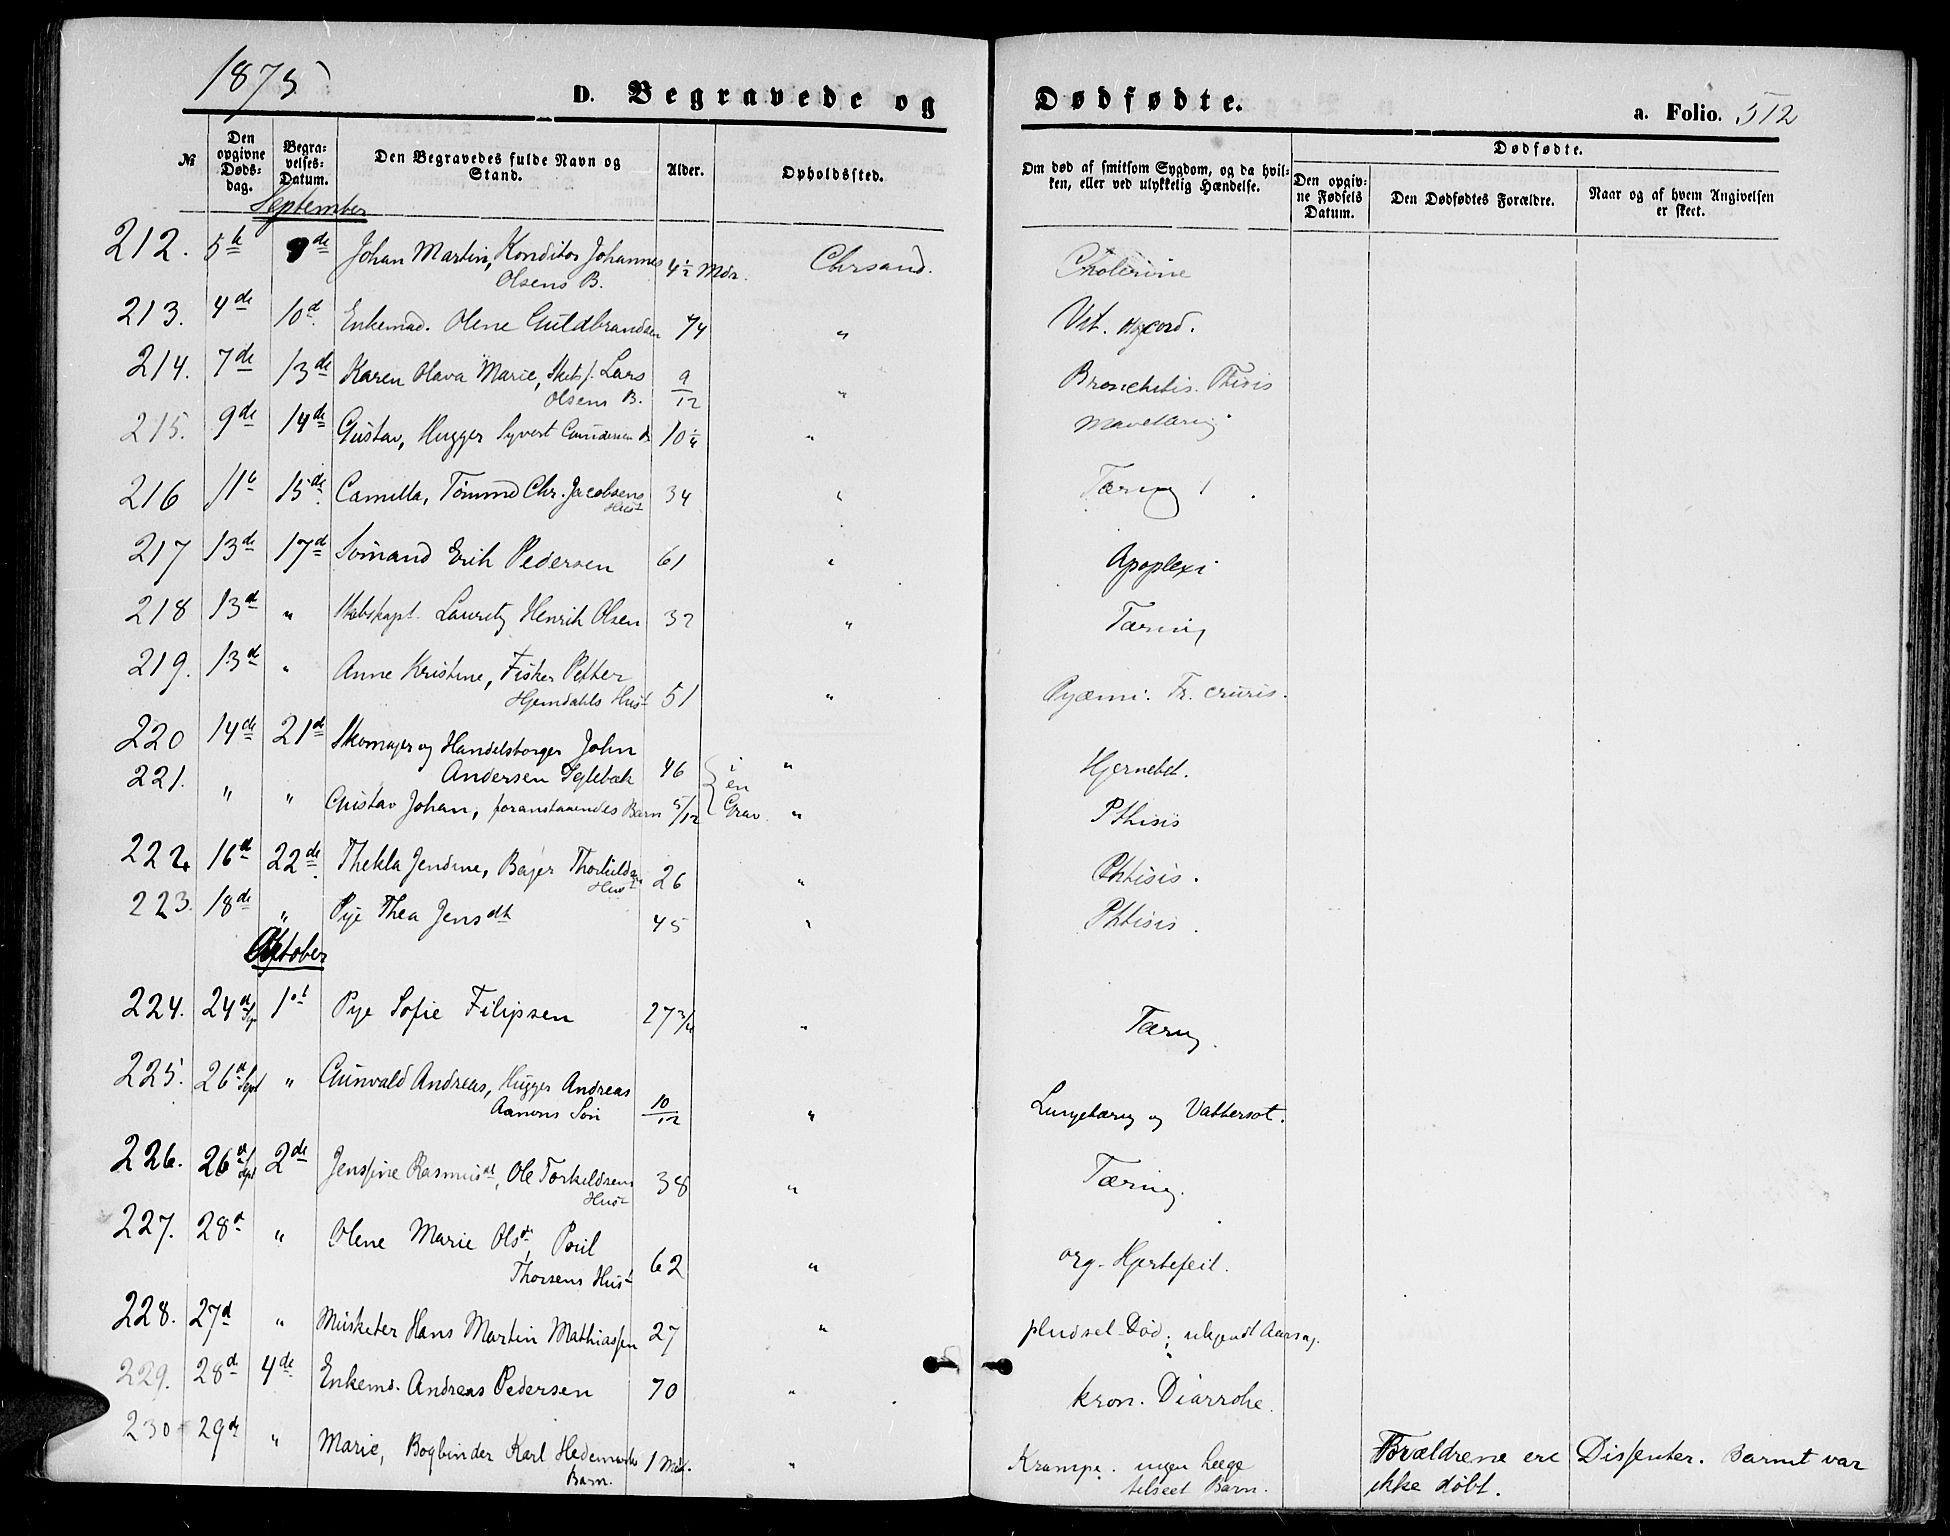 1875
D. Begravede og Dødfødte. a. Folio. 512
№ Den opgivne Dødsdag. Begravelses-Datum. Den Begravedes fulde Navn og Stand. Alder. Opholdssted. Om død af smitsom Sygdom, og da hvilken, eller ved ulykkelig Hændelse. Dødfødte. Den opgivne Fødsels Datum. Den Dødfødtes Forældre. Naar og af hvem Angivelsen er skeet.
September
212. 5te 9de Johan Martin, Konditor Johannes 4½ Mdr. Chrsand. Cholerine
Olsens B.
213. 4de 10d Enkemad. Olene Guldbrandsen 74 " Vit. cord.
214. 7de 13de Karen Olava Marie, Lars 9/12 " Bronchitis. Phisis
Olsens B.
215. 9de 14de Gustav, Hugger Syvert Gundersen B 10¼ " Mavetæring
216 11te 15de Camilla, Tømmd Chr. Jacobsens 34 " Tæring
Hust
217 13de 17d Sømand Erik Pedersen 61 " Apoplexi
218 13d " Skibskapt. Lauritz Henrik Olsen 32 " Tæring
219. 13d " Anne Kristine, Fisker Petter
Hjemdahls Hust 51 " Pyæmi. Fr. cruris.
220 14de 21d Skomager og Handelsborger John
Andersen Iglebæk 46 i " Hjernebet.
221. " " Gustav Johan, foranstaaendes Barn 5/12 en Grav. " Pthisis
222 16d 22de Thekla Jendine, Bajer Thorkilds 26 " Phtisis.
Hust
223. 18de " Pige Thea Jensdt 45 " Phtisis.
Oktober
224. 24d Sep 1st Pige Sofie Filipsen 27 3/4 " Tæring.
225. 26d Sept " Gunvald Andreas, Hugger Andreas
Aanons Søn 10/12 " Lungetæring og Vattersot.
226. 26d Sept 2de Jensine Rasmusdt, Ole Torkildsens 38 " Tæring.
Hust
227. 28d " Olene Marie Olsdt, Poul
Thorsens Hust 62 " org. Hjertefeil.
228. 27d " Musketer Hans Martin Mathiassen 27 " pludsel. Død; ukjendt Aarsag.
229. 28d 4de Enkemd. Andreas Pedersen 70 " kron. Diarrohe.
230 29de " Marie, Bogbinder Karl Hedemarks 1 Md. " Krampe. ingen Læge Forældrene ere Dissenter. Barnet var
Barn. tilseet Barn. ikke døbt.